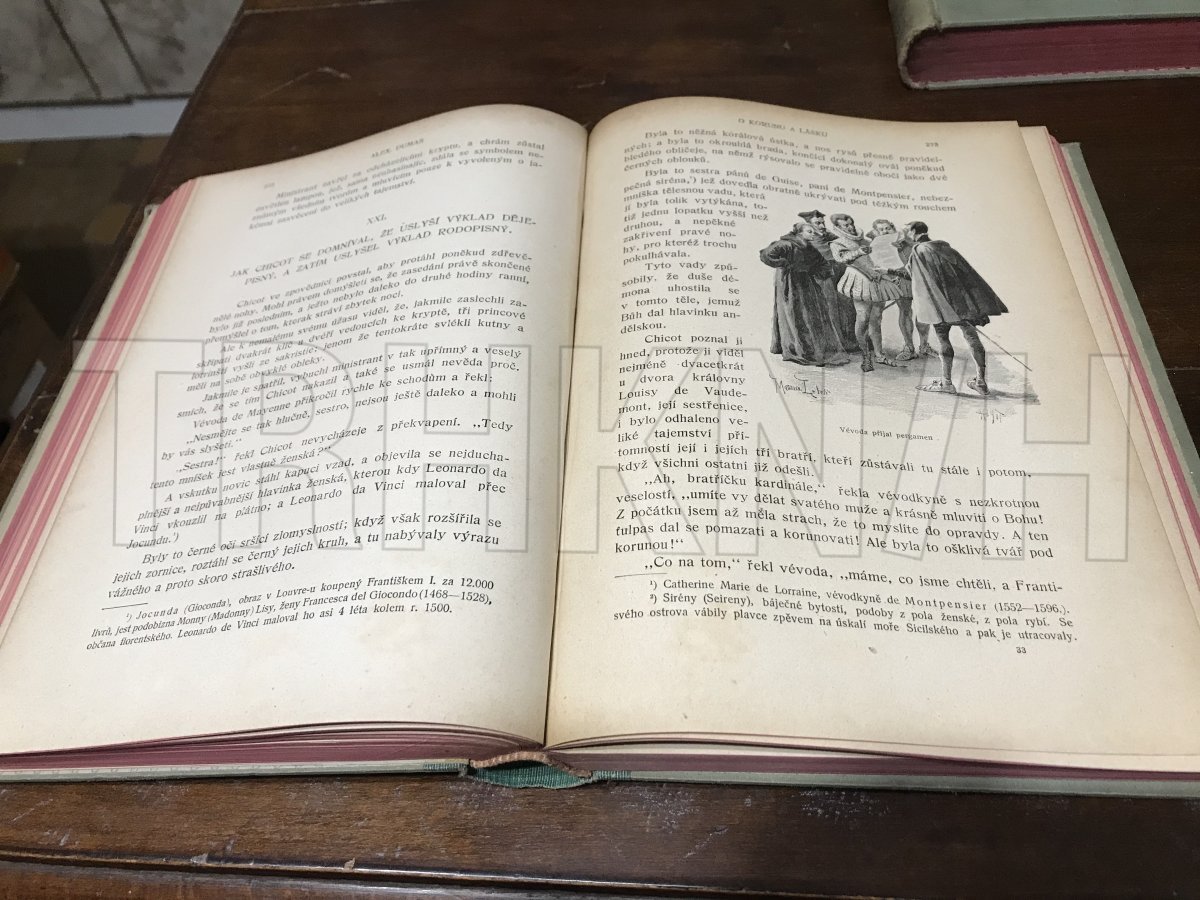 ALEX. DUMAS
Ministrant zavřel za odcházejícími kryptu, a chrám zůstal
osvětlen lampou, jež, sama neuhasínajíc, zdála se symbolem ne-
známým všedním tvorům a mluvícím pouze k vyvoleným o ja-
kémsi zasvěcení do velikých tajemství.
XXI.
JAK CHICOT SE DOMNÍVAL, ŽE ÚSLYŠÍ VÝKLAD DĚJE-
PISNÝ, A ZATÍM USLYŠEL VÝKLAD RODOPISNÝ.
Chicot ve zpovědnici povstal, aby protáhl poněkud zdřevě-
nělé nohy. Mohl právem domýšleti se, že zasedání právě skončené
bylo již posledním, a ježto nebylo daleko do druhé hodiny ranní,
přemýšlel o tom, kterak stráví zbytek noci.
Ale k nemalému svému úžasu viděl, že, jakmile zaslechli za-
skřípati dvakrát klíč u dveří vedoucích ke kryptě, tři princové
lotrinští vyšli ze sakristie; jenom že tentokráte svlékli kutny a
měli na sobě obvyklé obleky.
Jakmile je spatřil, vybuchl ministrant v tak upřímný a veselý
smích, že se jím Chicot nakazil a také se usmál nevěda proč.
Vévoda de Mayenne přikročil rychle ke schodům a řekl:
„Nesmějte se tak hlučně, sestro, nejsou ještě daleko a mohli
by vás slyšeti.“
„Sestra!“ řekl Chicot nevycházeje z překvapení. „Tedy
tento mníšek jest vlastně ženská?“
A vskutku novic stáhl kapuci vzad, a objevila se nejducha-
plnější a nejpůvabnější hlavinka ženská, kterou kdy Leonardo da
Vinci vkouzlil na plátno; a Leonardo da Vinci maloval přec
Jocundu.¹)
Byly to černé oči sršící zlomyslností; když však rozšířila se
jejich zornice, roztáhl se černý jejich kruh, a tu nabývaly výrazu
vážného a proto skoro strašlivého.
¹) Jocunda (Gioconda), obraz v Louvre-u koupený Františkem I. za 12.000
livrů, jest podobizna Monny (Madonny) Lisy, ženy Francesca del Giocondo (1468—1528),
občana florentského. Leonardo de Vinci maloval ho asi 4 léta kolem r. 1500.
O KORUNU A LÁSKU
273
Byla to něžná korálová ústka, a nos rysů přesně pravidel-
ných; a byla to okrouhlá brada, končící dokonalý ovál poněkud
bledého obličeje, na němž rýsovalo se pravidelné obočí jako dvě
černých oblouků.
Byla to sestra pánů de Guise, paní de Montpensier, nebez-
pečná siréna,²) jež dovedla obratně ukrývati pod těžkým rouchem
mniška tělesnou vadu, která
jí byla tolik vytýkána, to-
tiž jednu lopatku vyšší než
druhou, a nepěkné
zakřivení pravé no-
hy, pro kteréž trochu
pokulhávala.
Tyto vady způ-
sobily, že duše dé-
mona uhostila se
v tomto těle, jemuž
Bůh dal hlavinku an-
dělskou.
Chicot poznal ji
ihned, protože ji viděl
nejméně dvacetkrát
u dvora královny
Louisy de Vaude-
mont, její sestřenice,
i bylo odhaleno ve-
liké tajemství pří-
tomností její i jejích tří bratří, kteří zůstávali tu stále i potom,
když všichni ostatní již odešli.
„Ah, bratříčku kardinále,“ řekla vévodkyně s nezkrotnou
veselostí, „umíte vy dělat svatého muže a krásně mluviti o Bohu!
Z počátku jsem až měla strach, že to myslíte do opravdy. A ten
ťulpas dal se pomazati a korunovati! Ale byla to ošklivá tvář pod
korunou!“
„Co na tom,“ řekl vévoda, „máme, co jsme chtěli, a Franti-
Vévoda přijal pergamen
¹) Catherine Marie de Lorraine, vévodkyně de Montpensier (1552—1596.).
²) Sirény (Seireny), báječné bytosti, podoby z pola ženské, z pola rybí. Se
svého ostrova vábily plavce zpěvem na úskalí moře Sicilského a pak je utracovaly.
33
TRHKNIH